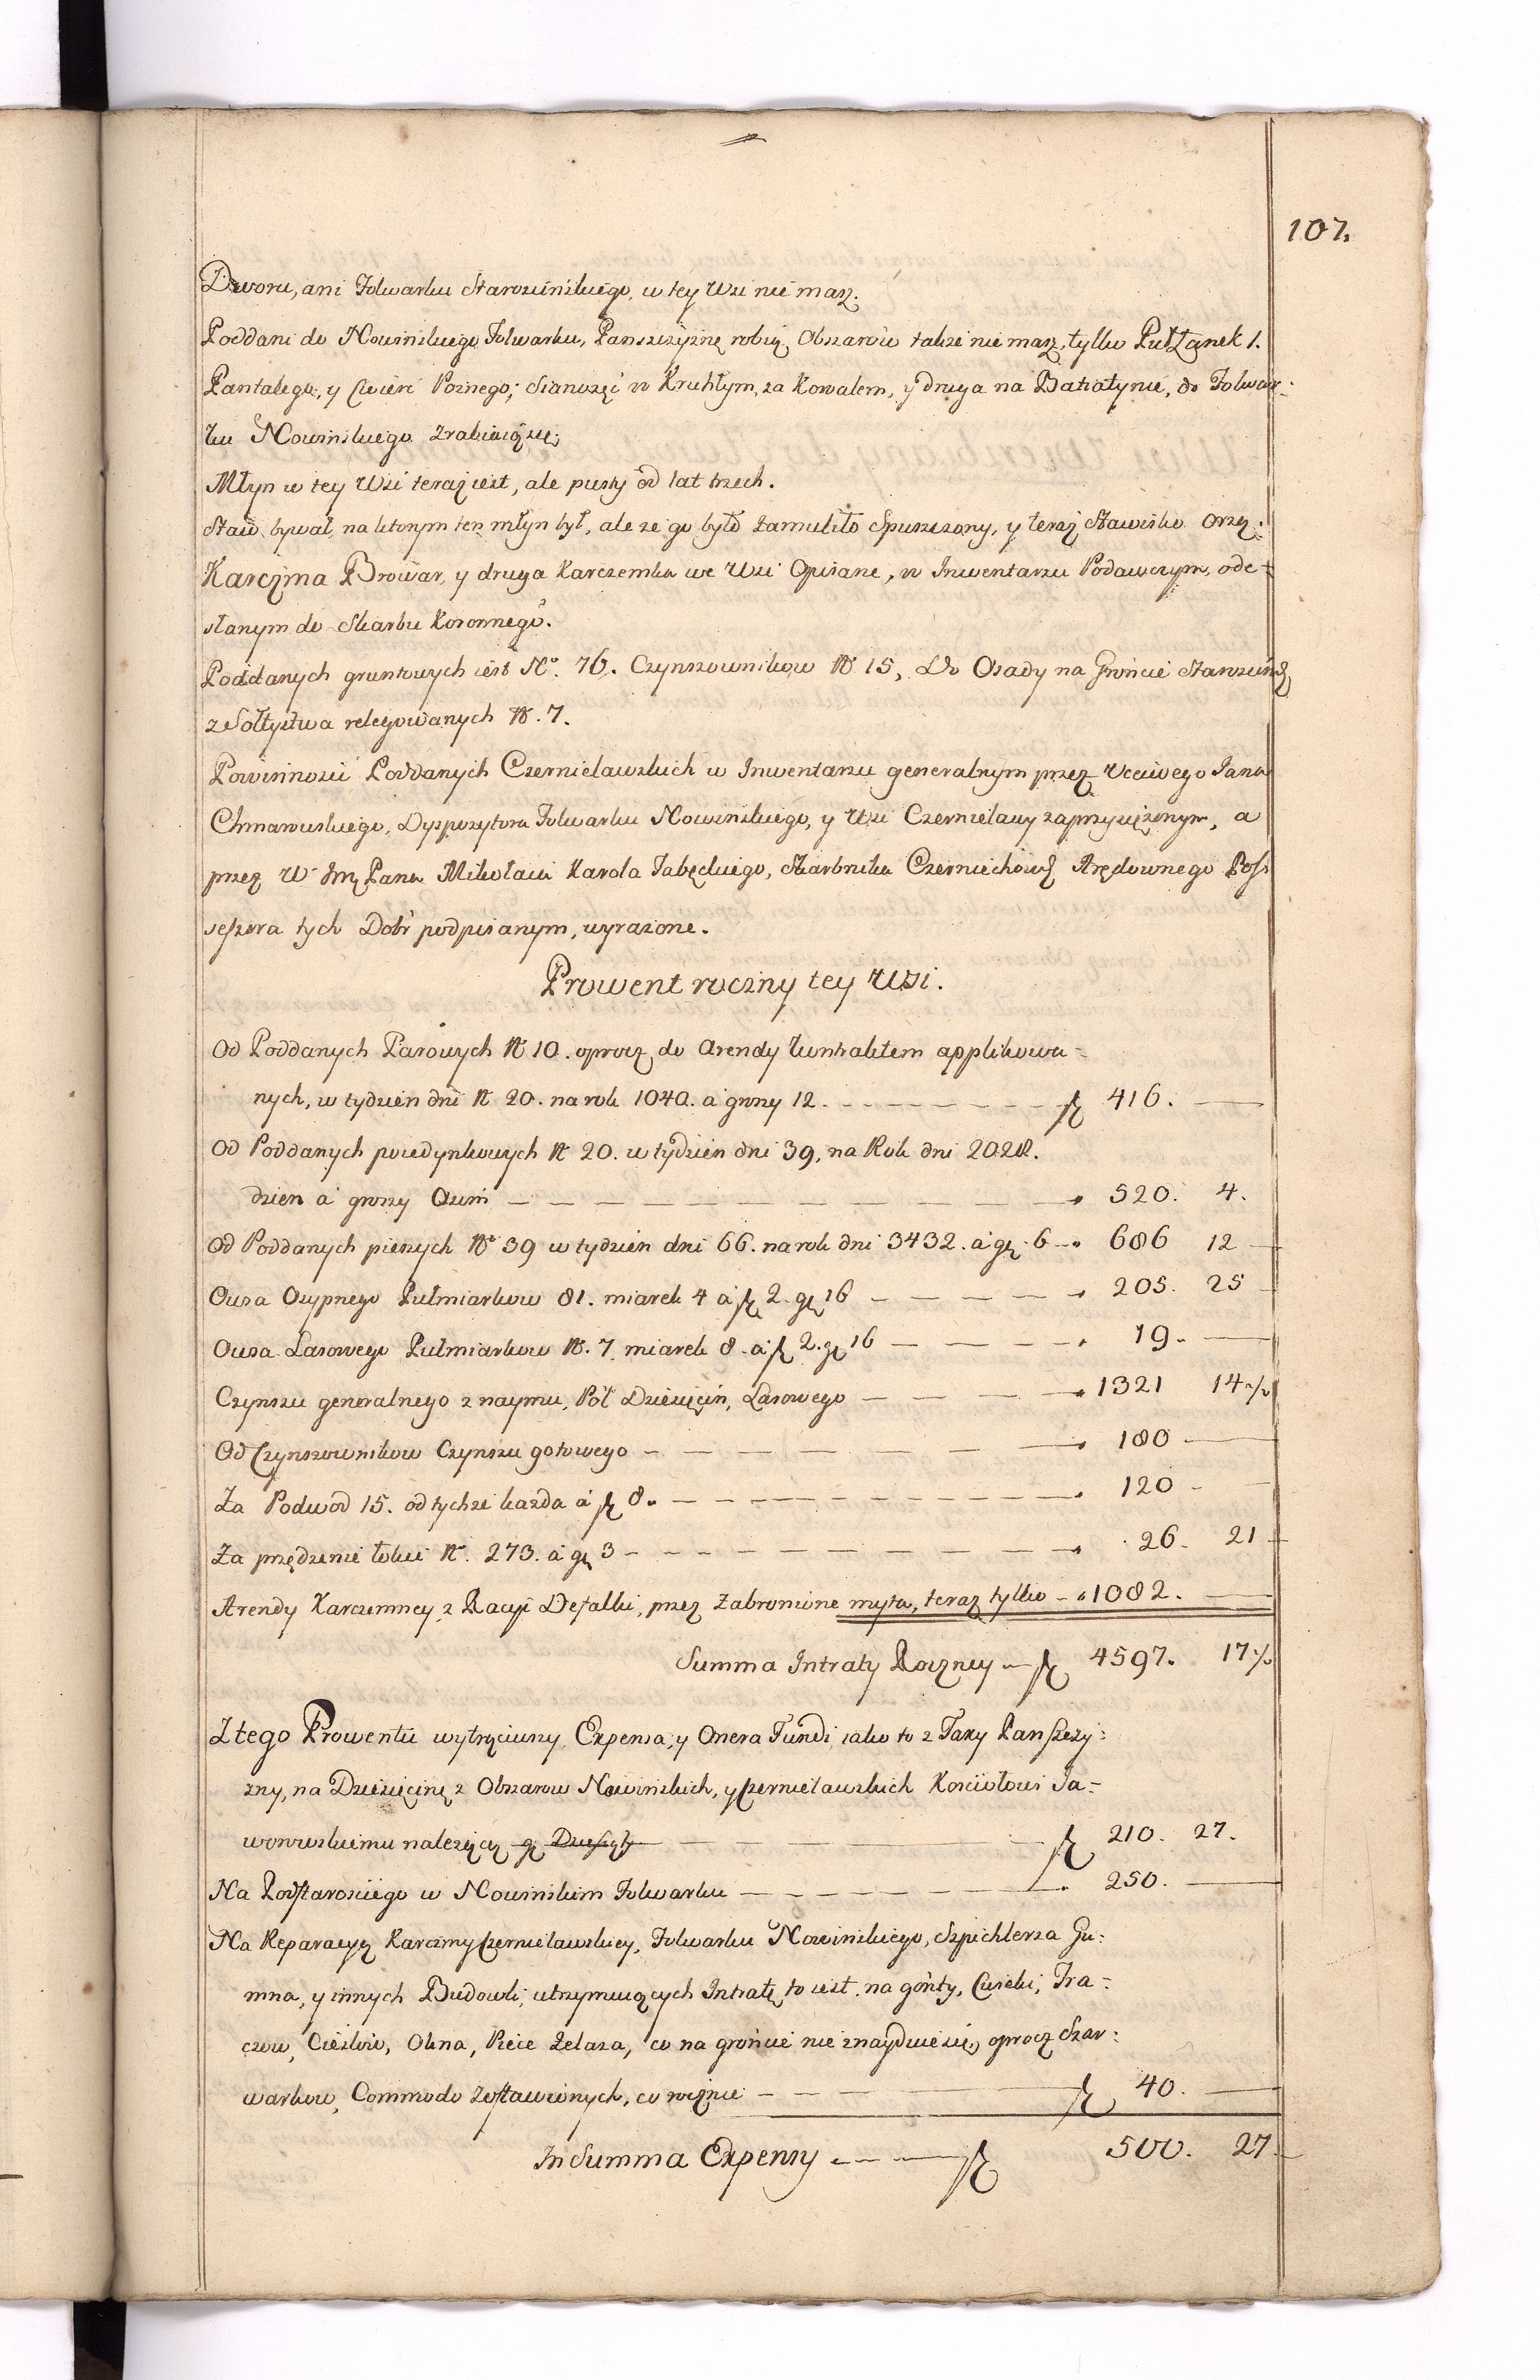 107.
Dworu, ani Folwarku Starościńskiego, w tey Wsi nie masz.
Poddani do Nowińskiego Folwarku, Pańszczyznę robią, Obszarów także nie masz, tylko Puł Łanek 1.
Pantalega, y Cwierć Poznego; Sianożęć w Kruhłym, za Kowalem, y druga na Bahatynie, do Folwar-
ku Nowińskiego zrabiaią się;
Młyn w tey Wsi teraz iest, ale pusty od lat trzech.
Staw bywał, na ktorym ten młyn był, ale że go było zamuliło Spuszczony, y teraz Stawisko orzą.
Karczma Browar, y druga Karczemka we Wsi Opisane, w Inwentarzu Podawczym, ode-
słanym do Skarbu Koronnego.
Poddanych gruntowych iest No. 76. Czynszownikow No 15, Do Osady na Gróncie Starościń:
z Sołtystwa relegowanych No. 7.
Powinności Poddanych Czernielawskich w Inwentarzu generalnym przez Ucciwego Jana
Chmarawskiego, Dyspozytora Folwarku Nowińskiego, y Wsi Czernielawy zaprzysiężonym, a
przez W Jm Pana Mikołaia Karola Jabęckiego, Skarbnika Czerniechow: Arędownego Pos-
sessora tych Dobr podpisanym, wyrażone.
Prowent roczny tey Wsi.
Od Poddanych Parowych No 10. oprocz do Arendy kontraktem applikowa-
nych, w tydzień dni No 20. na rok 1040. á groszy 12. fl 416.
Od Poddanych poiedynkowych No 20. w tydzień dni 39, na Rok dni 2028.
dzien á groszy Osm 520. 4.
Od Poddanych pieszych No 39 w tydzień dni 66. na rok dni 3432. á gr. 6 686 12
Owsa Osypnego Pułmiarkow 81. miarek 4 á fl 2. gr 16 205. 25
Owsa Lasowego Pułmiarkow No. 7 miarek 8. á fl 2. gr 16 19.
Czynszu generalnego z naymu, Pół Dziesięcin, Lasowego 1321 14 ½
Od Czynszownikow Czynszu gotowego 180
Za Podwod 15. od tychże każda á fl 8. 120
Za przędzenie łokci No. 273. á gr 3 26. 21
Arendy Karczemney z Racyi Defalki, przez Zabronione myta, teraz tylko 1082.
Summa Intraty Roczney fl 4597. 17 ½
Z tego Prowentu wytrąciwszy Expensa, y Onera Fundi, iako to z Taxy Panszczy:
zny, na Dziesięcinę z Obszarow Nowińskich, y Czernielawskich Kościołowi Ja-
worowskiemu należącą fl 210. 27.
Na Podstarościego w Nowińskim Folwarku 250.
Na Reparacyą Karczmy Czernielawskiey, Folwarku Nowińskiego, Szpichlerza Gu:
mna, y innych Budowli, utrzymuiących Intratę, to iest. na gónty, Cwieki, Tra-
czow, Cieślow, Okna, Piece Żelaza, co na gróncie nie znayduie się, oprocz Szar:
warkow, Commodo zostawionych, co rocznie fl 40.
In Summa Expensy fl 500. 27.